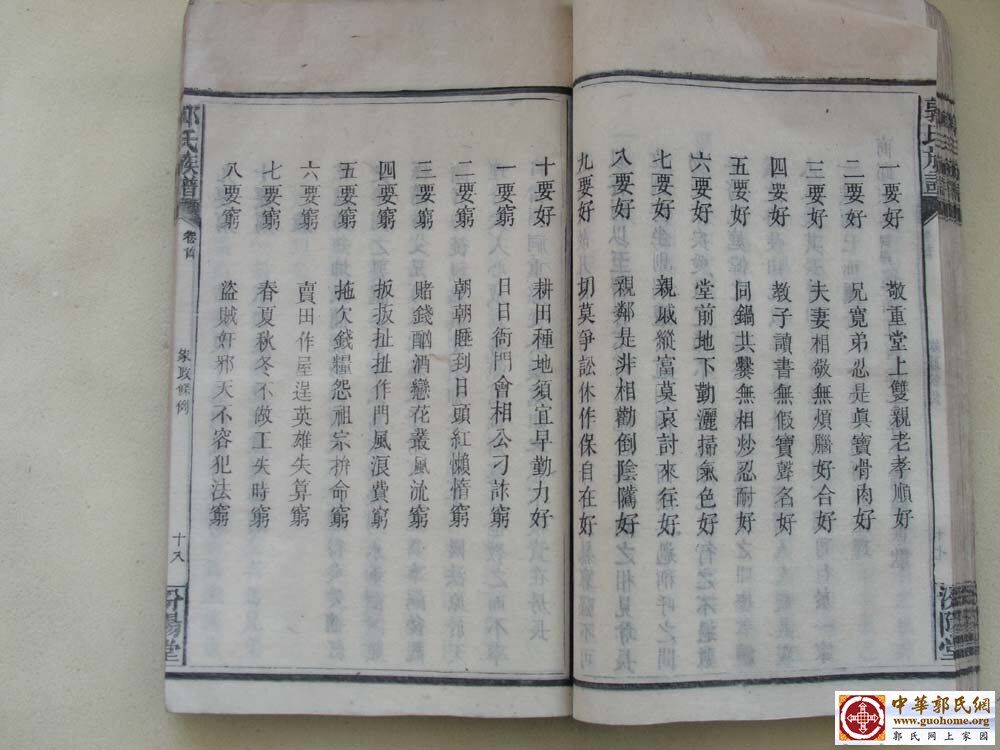 郭氏族譜
汾陽堂
一要好 敬重堂上雙親老孝順好
二要好 兄寬弟忍是眞寶骨肉好
三要好 夫妻相敬無煩腦好合好
四要好 教子讀書無假寶聲名好
五要好 同鍋共爨無相炒忍耐好
六要好 堂前地下勤灑掃氣色好
七要好 親戚縱富莫哀討來往好
八要好 親鄰是非相勸倒陰隲好
九要好 切莫爭訟休作保自在好
十要好 耕田種地須宜早勤力好
一要窮 日日衙門會相公刁訟窮
二要窮 朝朝睡到日頭紅懶惰窮
三要窮 賭錢酗酒戀花叢風流窮
四要窮 扳扳扯扯作門風浪費窮
五要窮 拖欠錢糧怨祖宗拚命窮
六要窮 賣田作屋逞英雄失算窮
七要窮 春夏秋冬不做工失時窮
八要窮 盜賊奸邪天不容犯法窮
郭氏族譜
卷首
家政條例
十八
汾陽堂
中華郭氏網
www.guohome.org
郭氏网上家园